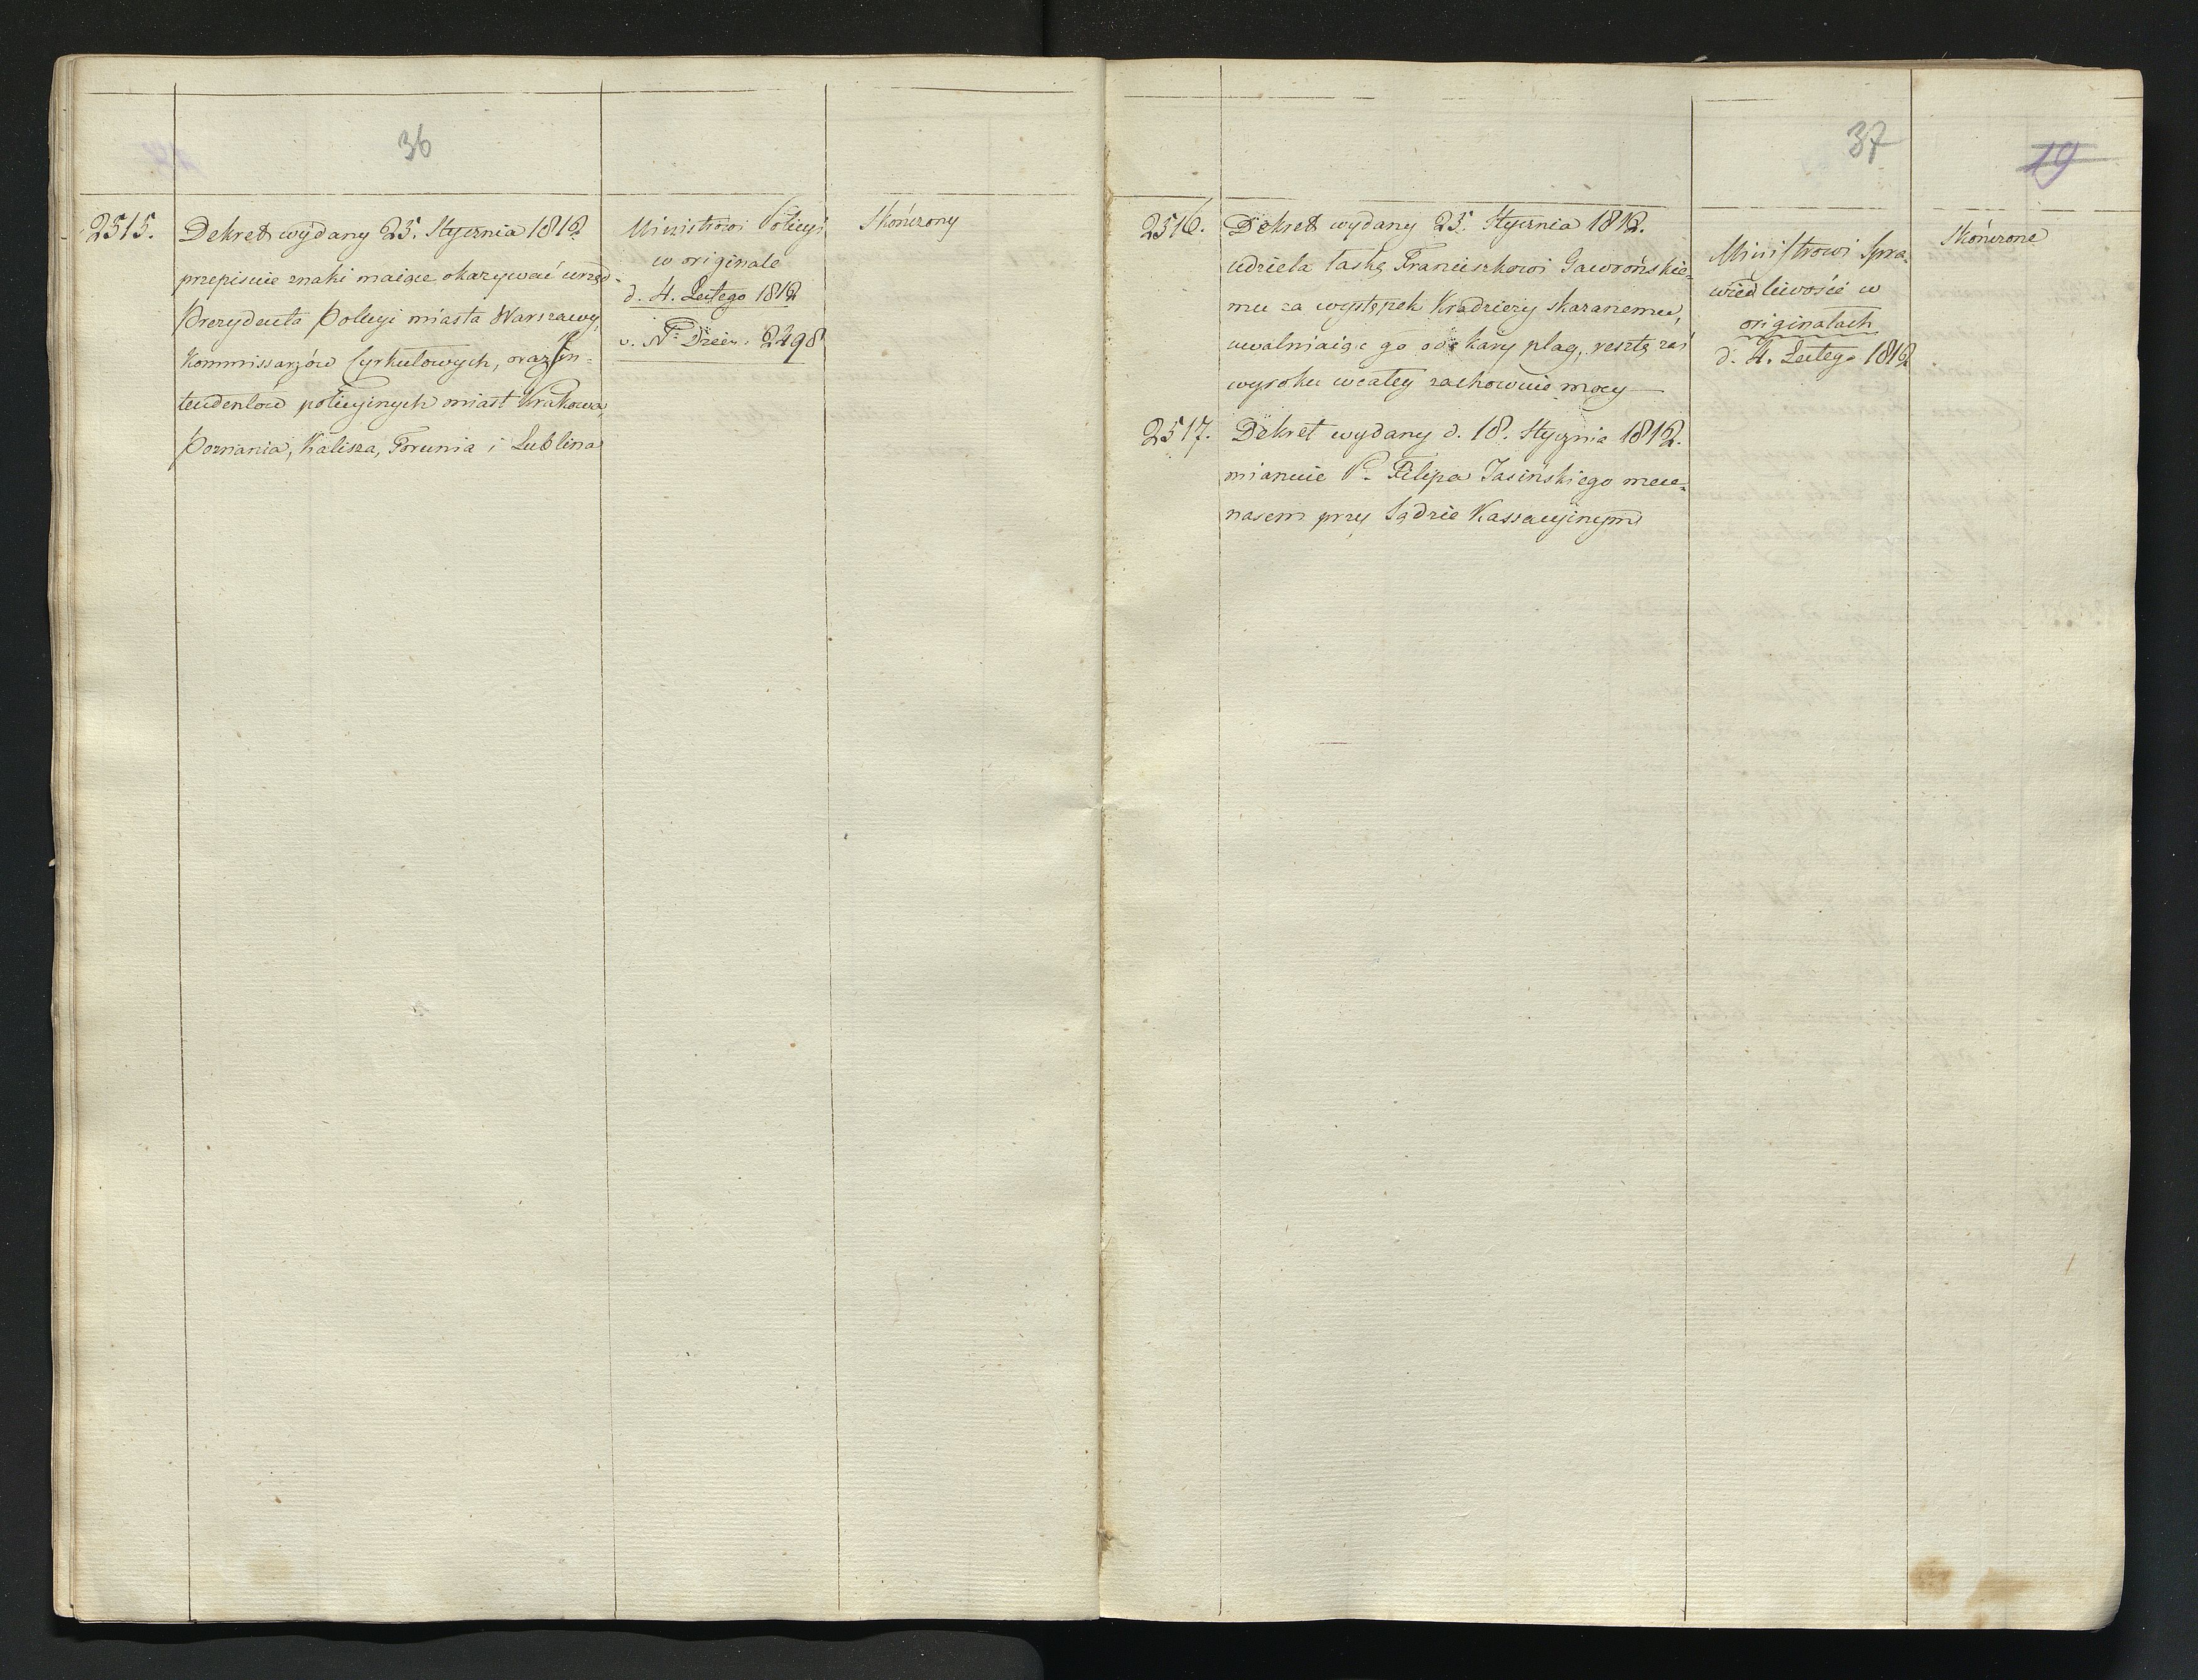 36
2515.
Dekret wydany 25. Stycznia 1812.
przepisuie znaki maiące okazywać urząd
Prezydenta Policyi miasta Warszawy,
Kommissarzów Cyrkułowych, oraz In-
tendentow policyinych miast Krakowa,
Poznania, Kalisza, Torunia i Lublina
Ministrowi Policyi
w originale
d. 4. Lutego 1812
v. Nr. Dzien. 2498
Skończony
37
19
2516.
Dekret wydany 25. Stycznia 1812.
udziela łaskę Franciszkowi Gawrońskie-
mu za występek Kradzieży skazanemu,
uwalniaiąc go od kary plag, resztę zaś
wyroku wcałey zachowuie mocy
2517.
Dekret wydany d. 18. Stycznia 1812.
mianuie P. Filipa Jasińskiego mece-
nasem przy Sądzie Kassacyinym
Ministrowi Spra-
wiedliwości w
originałach
d. 4. Lutego 1812
Skończone